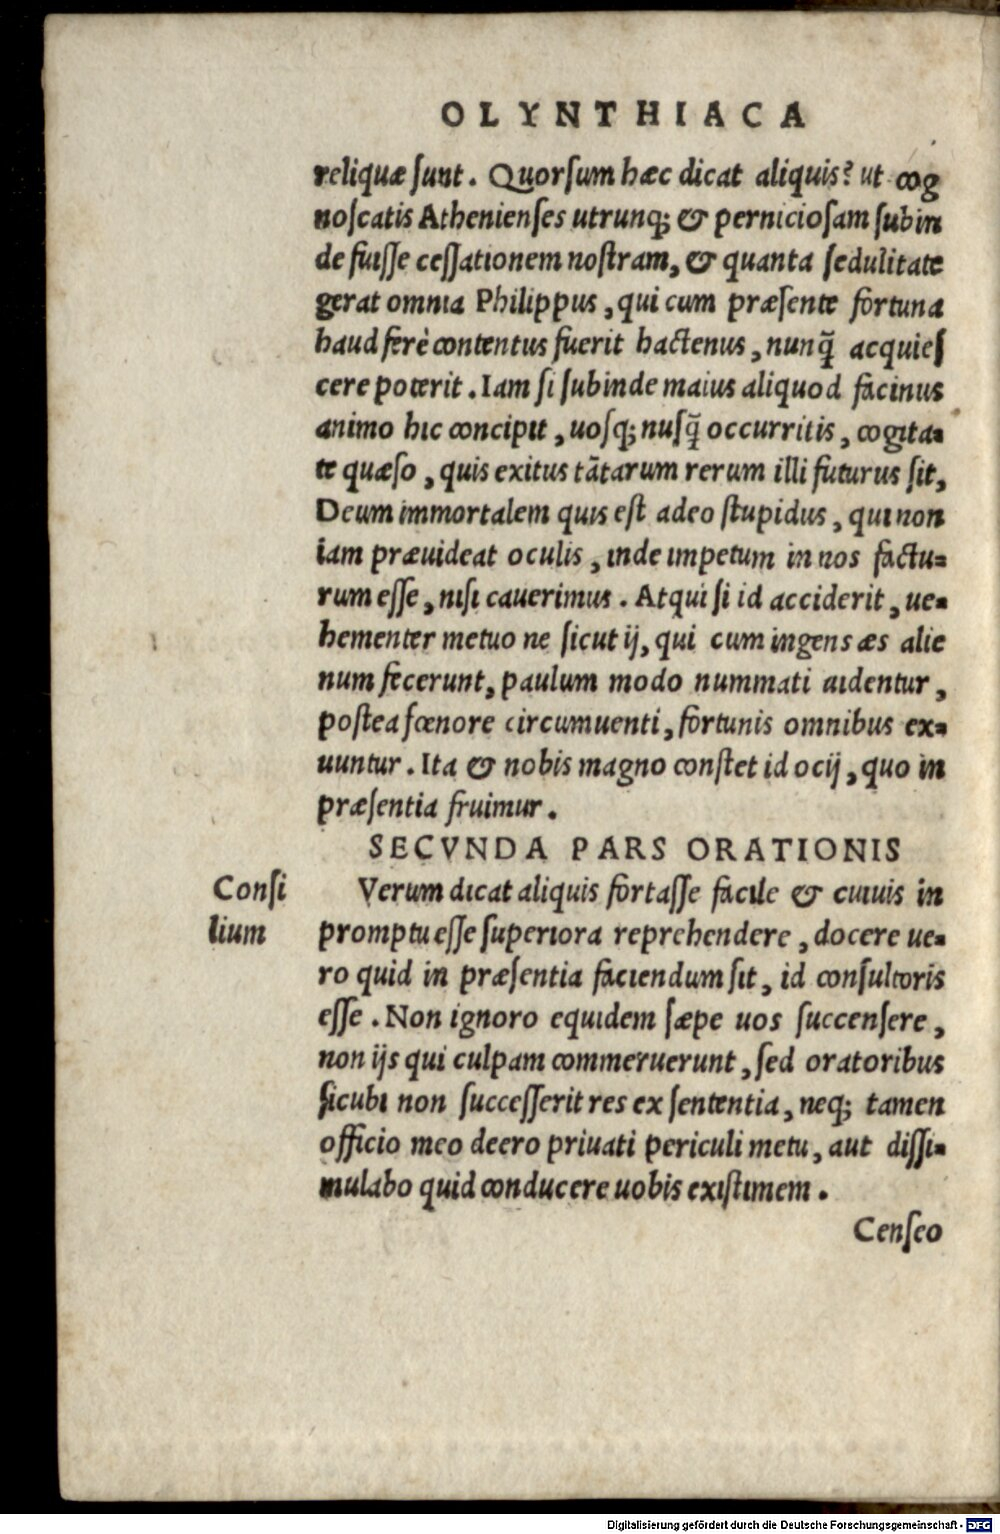 OLYNTHIACA
reliquæ ſunt. Quorſum hæc dicat aliquis? ut cog
noſcatis Athenienſes utrunq; & pernicioſam ſubin
de fuiſſe ceſſationem noſtram, & quanta ſedulitate
gerat omnia Philippus, qui cum præſente fortuna
haud ferè contentus fuerit hactenus, nunq̃ acquieſ
cere poterit. Iam ſi ſubinde maius aliquod facinus
animo hic concipit, uoſq; nuſq̃ occurritis, cogita=
te quæſo, quis exitus tãtarum rerum illi futurus ſit,
Deum immortalem quis eſt adeo ſtupidus, qui non
iam præuideat oculis, inde impetum in nos factu=
rum eſſe, niſi cauerimus. Atqui ſi id acciderit, ue=
hementer metuo ne ſicut ij, qui cum ingens æs alie
num fecerunt, paulum modo nummati uidentur,
poſtea fœnore circumuenti, fortunis omnibus ex=
uuntur. Ita & nobis magno conſtet id ocij, quo in
præſentia fruimur.
SECVNDA PARS ORATIONIS
Conſi
lium
Verum dicat aliquis fortaſſe facile & cuiuis in
promptu eſſe ſuperiora reprehendere, docere ue=
ro quid in præſentia faciendum ſit, id conſultoris
eſſe. Non ignoro equidem ſæpe uos ſuccenſere,
non ijs qui culpam commeruerunt, ſed oratoribus
ſicubi non ſucceſſerit res ex ſententia, neq; tamen
officio meo deero priuati periculi metu, aut diſſi=
mulabo quid conducere uobis exiſtimem.
Cenſeo
Digitalisierung gefördert durch die Deutsche Forschungsgemeinschaft - DFG